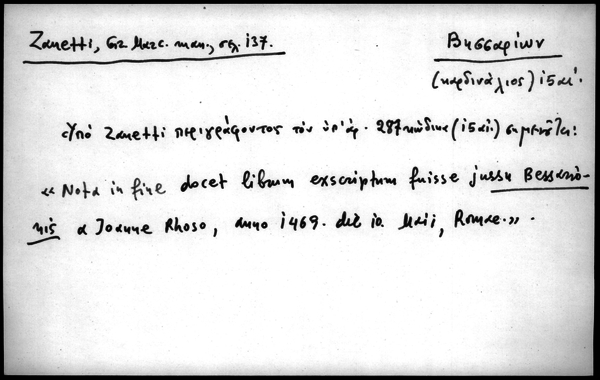 Zanetti, Gr. Marc. man., σελ. 137.
Βησσαρίων
(καρδινάλιος) 15 αἰ.
Ὑπό Zanetti περιγράφοντος τόν ὑπ' ἀρ. 287 κώδικα (15 αἰ.) σημειοῦται:
« Nota in fine docet librum exscriptum fuisse jussu Bessario-
nis a Joanne Rhoso, anno 1469. die 10. Maii, Romae.» .